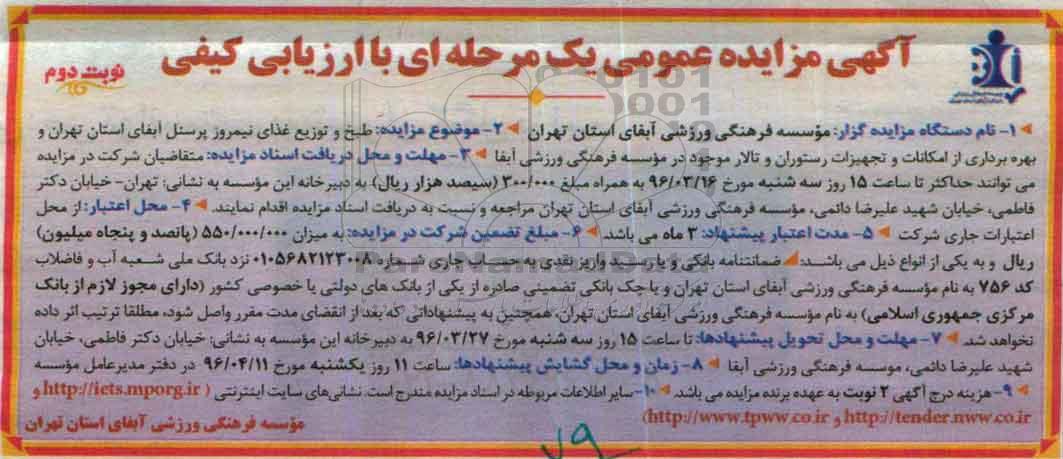 آگهی مزایده عمومی یک مرحله ای با ارزیابی کیفی
نوبت دوم
۱- نام دستگاه مزایده گزار: مؤسسه فرهنگی ورزشی آبفای استان تهران ۲- موضوع مزایده: طبخ و توزیع غذای نیمروز پرسنل آبفای استان تهران و
بهره برداری از امکانات و تجهیزات رستوران و تالار موجود در مؤسسه فرهنگی ورزشی آبفا ۳- مهلت و محل دریافت اسناد مزایده: متقاضیان شرکت در مزایده
می توانند حداکثر تا ساعت ۱۵ روز سه شنبه مورخ ۹۶/۰۳/۱۶ به همراه مبلغ ۳۰۰/۰۰۰ (سیصد هزار ریال) به دبیرخانه این مؤسسه به نشانی: تهران- خیابان دکتر
فاطمی، خیابان شهید علیرضا دائمی، مؤسسه فرهنگی ورزشی آبفای استان تهران مراجعه و نسبت به دریافت اسناد مزایده اقدام نمایند. ۴- محل اعتبار: از محل
اعتبارات جاری شرکت ۵- مدت اعتبار پیشنهاد: ۳ ماه می باشد. ۶- مبلغ تضمین شرکت در مزایده: به میزان ۵۵۰/۰۰۰/۰۰۰ (پانصد و پنجاه میلیون)
ریال و به یکی از انواع ذیل می باشد: ضمانتنامه بانکی و یا رسید واریز نقدی به حساب جاری شماره ۰۱۰۵۶۸۲۱۲۳۰۰۸ نزد بانک ملی شعبه آب و فاضلاب
کد ۷۵۶ به نام مؤسسه فرهنگی ورزشی آبفای استان تهران و یا چک بانکی تضمینی صادره از یکی از بانک های دولتی یا خصوصی کشور (دارای مجوز لازم از بانک
مرکزی جمهوری اسلامی) به نام مؤسسه فرهنگی ورزشی آبفای استان تهران، همچنین به پیشنهاداتی که بعد از انقضای مدت مقرر واصل شود، مطلقا ترتیب اثر داده
نخواهد شد. ۷- مهلت و محل تحویل پیشنهادها: تا ساعت ۱۵ روز سه شنبه مورخ ۹۶/۰۳/۲۷ به دبیرخانه این مؤسسه به نشانی: خیابان دکتر فاطمی، خیابان
شهید علیرضا دائمی، موسسه فرهنگی ورزشی آبفا ۸- زمان و محل گشایش پیشنهادها: ساعت ۱۱ روز یکشنبه مورخ ۹۶/۰۴/۱۱ در دفتر مدیرعامل مؤسسه
۹- هزینه درج آگهی ۲ نوبت به عهده برنده مزایده می باشد. ۱۰- سایر اطلاعات مربوطه در اسناد مزایده مندرج است. نشانی های سایت اینترنتی ( http://iets.mporg.ir و
http://tender.nww.co.ir و http://www.tpww.co.ir)
مؤسسه فرهنگی ورزشی آبفای استان تهران
۷۹